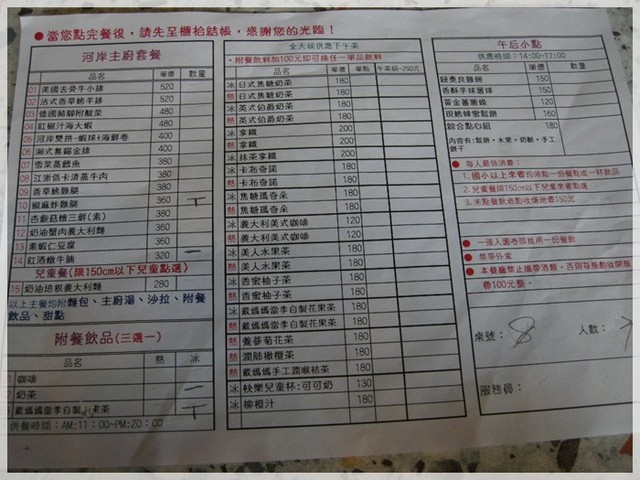 ●當您點完餐後，請先至櫃枱結帳，感謝您的光臨！
河岸主廚套餐
品名 單價 數量
01 美國去骨牛小排 520
02 活式香草鯖羊排 520
03 德國豬腳附酸菜 480
04 紅椒汁海大蝦 480
05 河岸雙拼-蝦球+海鮮卷 400
06 湘式無錫金排 400
07 雪菜蒸鱈魚 380
08 江浙低卡清蒸牛肉 380
09 香草嫩雞腿 360
10 椒麻炸雞腿 360
11 杏鮑菇燴三鮮(素) 380
12 奶油蟹肉義大利麵 360
13 素蝦仁豆腐 360
14 紅酒燉牛腩 320 一
兒童餐(限150cm以下兒童點選)
15 奶油培根義大利麵 280
以上主餐均附麵包、主廚湯、沙拉、附餐飲品、甜點
附餐飲品(三選一)
品名 熱 冰
咖啡
2 奶茶 一
戴媽媽當季自製水果茶
供餐時間：AM:11：00~PM:20：00
全天候供應下午茶
・附餐飲料加100元即可換任一單品飲料
品名 單價 單點
冰 日式焦糖奶茶 180
熱 日式焦糖奶茶 180
冰 英式伯爵奶茶 180
熱 英式伯爵奶茶 180
冰 拿鐵 200
熱 拿鐵 200
冰 抹茶拿鐵 200
冰 卡布奇諾 180
熱 卡布奇諾 180
冰 焦糖瑪奇朵 180
熱 焦糖瑪奇朵 180
冰 義大利美式咖啡 120
熱 義大利美式咖啡 120
冰 美人水果茶 180
熱 美人水果茶 180
冰 香蜜柚子茶 180
熱 香蜜柚子茶 180
冰 戴媽媽當季自製花果茶 180
熱 戴媽媽當季自製花果茶 180
熱 養蔘菊花茶 180
熱 潤肺橄欖茶 180
熱 戴媽媽手工潤喉桔茶 180
冰 快樂兒童杯:可可奶 130
冰 柳橙汁 180
午后小點
供應時間：14:00~17:00
品名 單價 數量
鹽東良雞腳 150
香酥芋球薯球 150
黃金薯圈條 120
現烤蜂蜜鬆餅 160
綜合點心組 180
*內含有:鬆餅，水果，奶酪，手工餅干
● 每人最低消費：
1.國小以上來賓均須點一份餐點或一杯飲品
2.兒童餐限150cm以下兒童來賓點選
3.未點餐飲者酌收場地費150元
● 一張入園卷限抵用一份餐飲
● 禁帶外食
● 本餐廳禁止攜帶酒類，否則每瓶酌收開瓶費100元整。
桌號： 8 人數：
服務員：